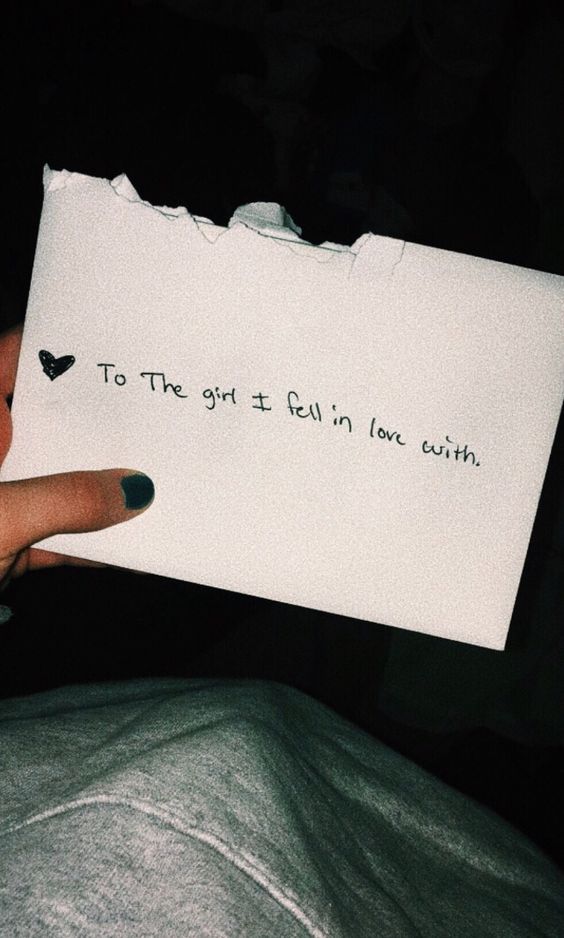 To The girl I fell in love with.